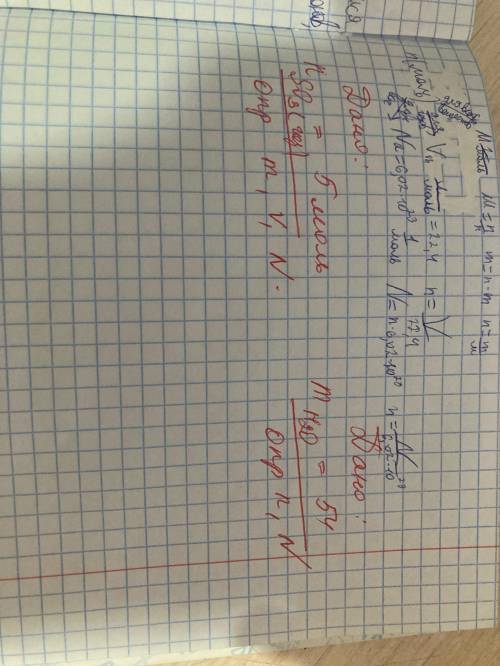 M = m/n m = n · m n = m/м
n, моль Vн л/моль = 22,4 n = V/22,4
Na = 6,02·10²³ 1/моль N = n · 6,02·10²³ n = N/6,02·10²³
Дано:
n SO₃ (газ) = 5 моль
Опр m, V, N.
Дано:
m H₂O = 54
Опр n, N